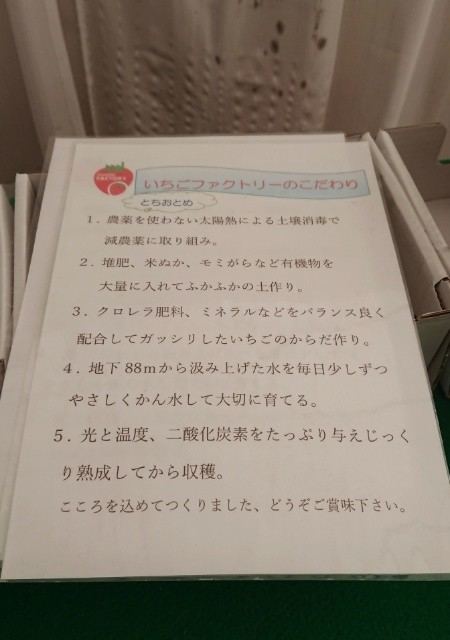 いちごファクトリーのこだわり
とちおとめ
１．農薬を使わない太陽熱による土壌消毒で
減農薬に取り組み。
２．堆肥、米ぬか、モミがらなど有機物を
大量に入れてふかふかの土作り。
３．クロレラ肥料、ミネラルなどをバランス良く
配合してガッシリしたいちごのからだ作り。
４．地下 88ｍから汲み上げた水を毎日少しずつ
やさしくかん水して大切に育てる。
５．光と温度、二酸化炭素をたっぷり与えじっく
り熟成してから収穫。
こころを込めてつくりました、どうぞご賞味下さい。